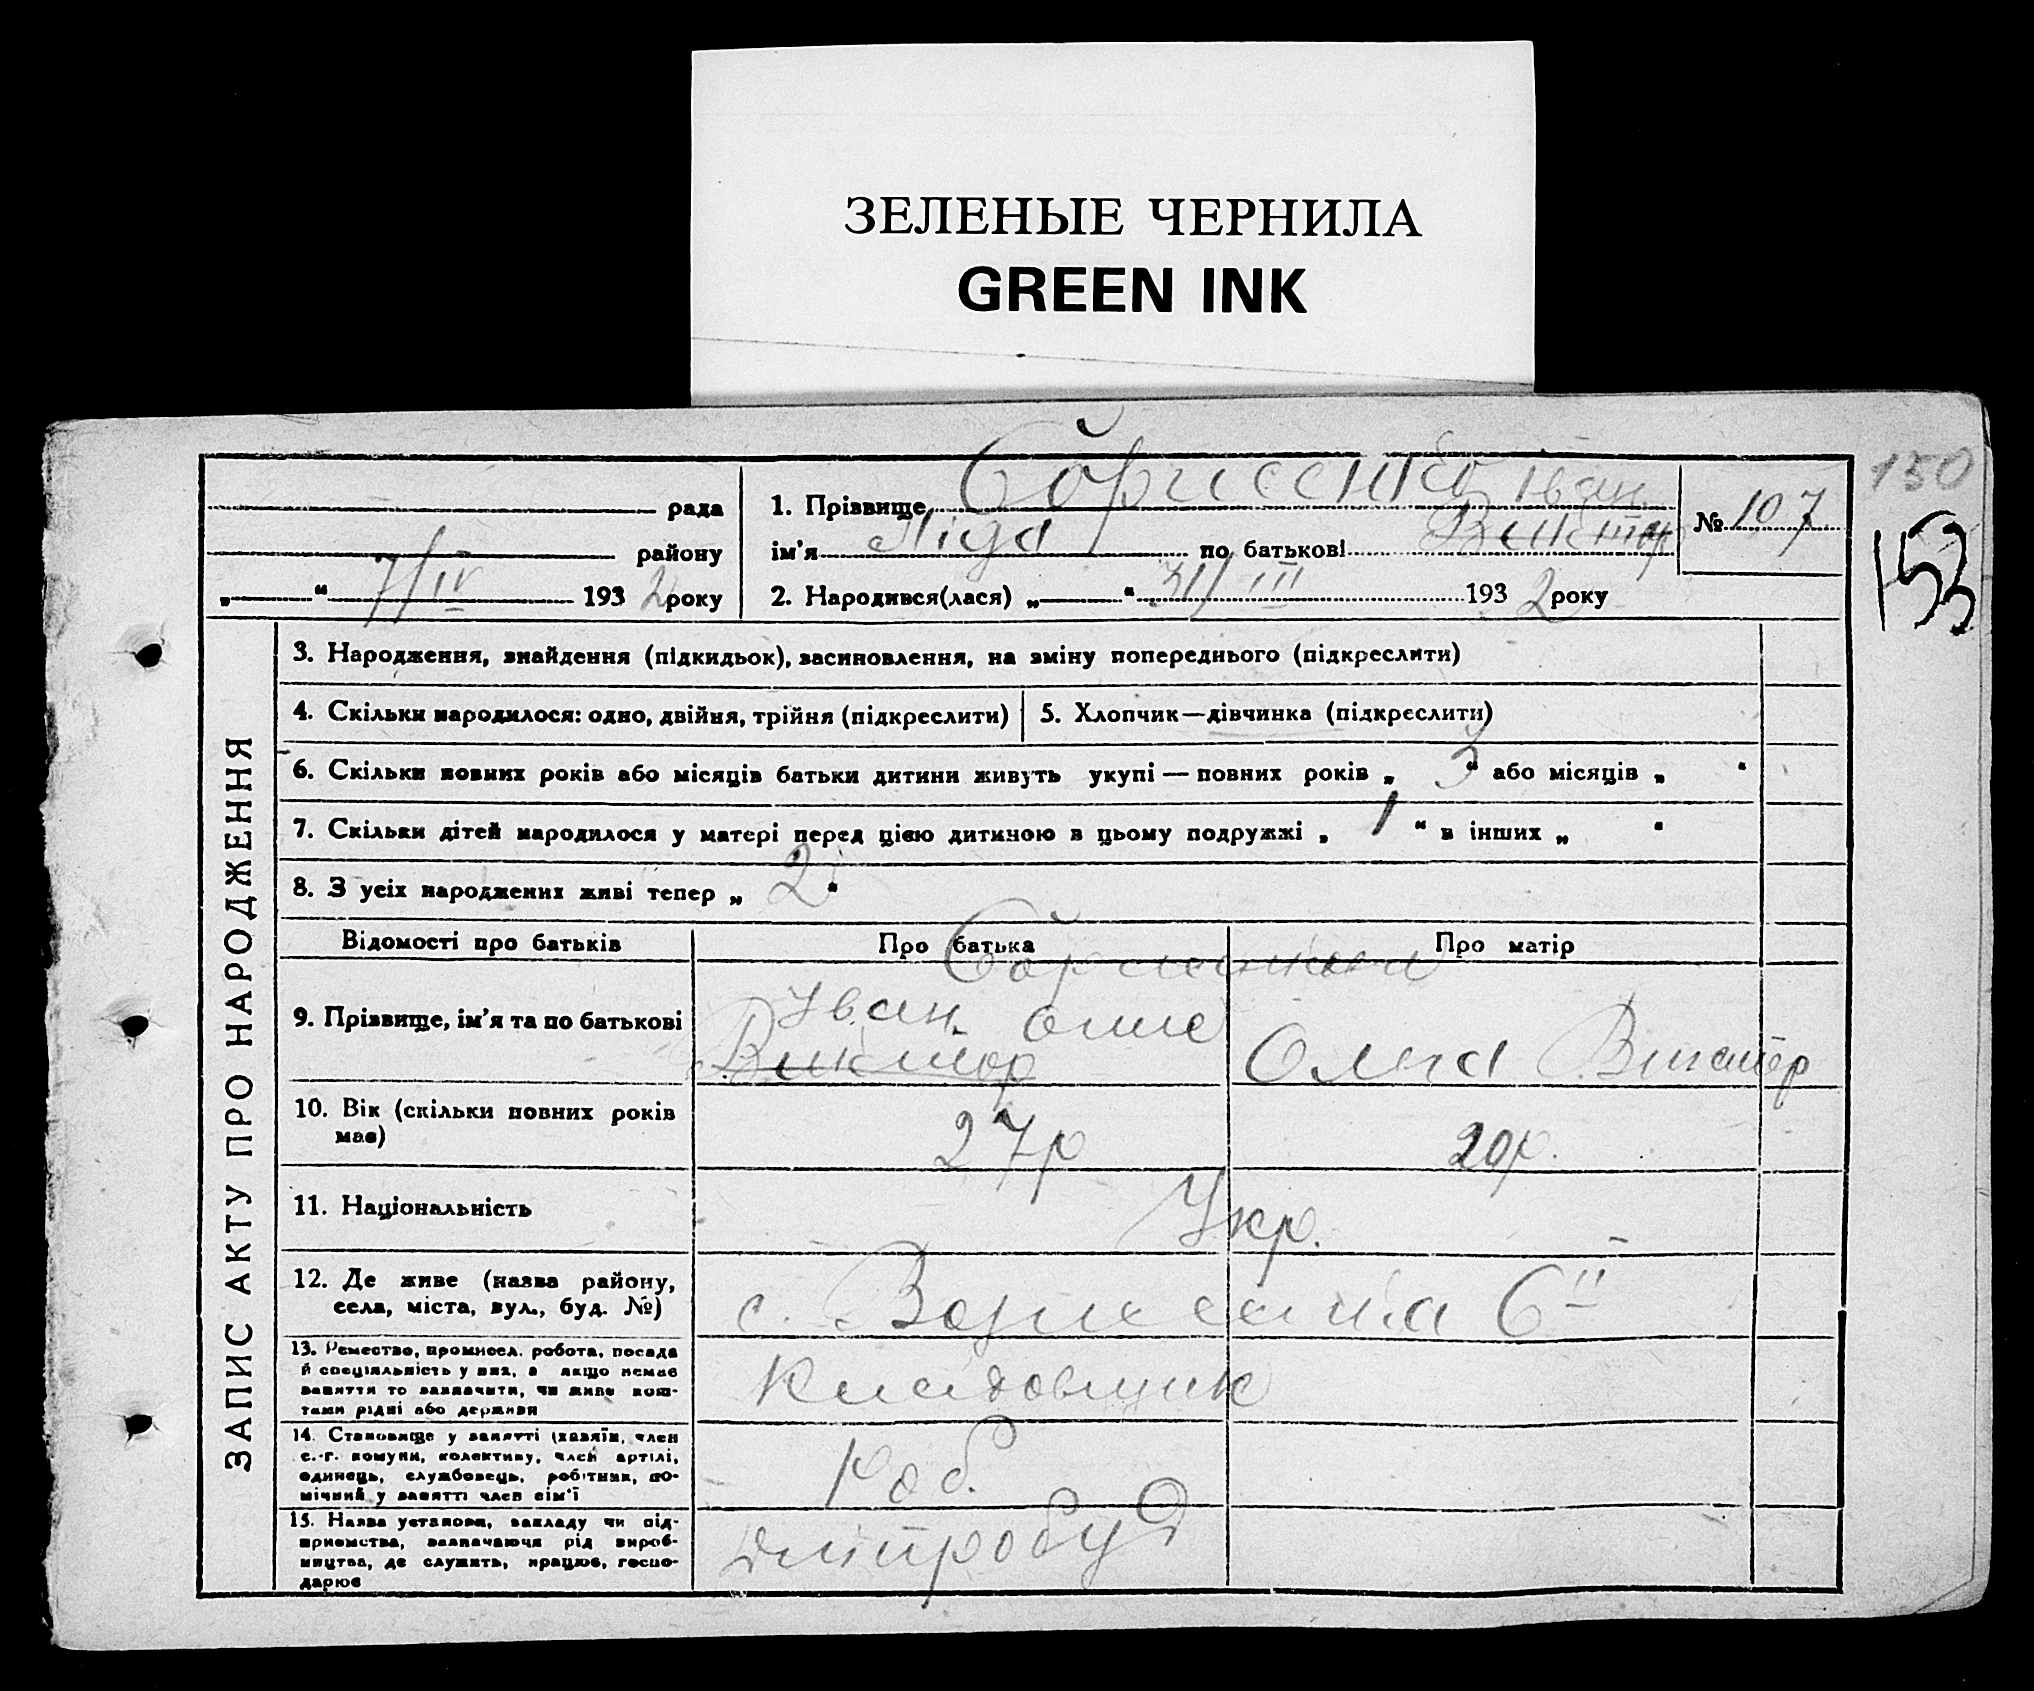 ЗЕЛЕНЫЕ ЧЕРНИЛА
GREEN INK
150
153
рада
району
„ “ 7/IV 1932 року
1. Прізвище Іван
ім'я Ліда по батькові Виктор
№ 107
2. Народився(лася) „ “ 31/III 1932 року
ЗАПИС АКТУ ПРО НАРОДЖЕННЯ
3. Народження, знайдення (підкидьок), засиновлення, на зміну попереднього (підкреслити)
4. Скільки народилося: одно, двійня, трійня (підкреслити) 5. Хлопчик—дівчинка (підкреслити)
6. Скільки повних років або місяців батьки дитини живуть укупі — повних років „ 3 “ або місяців „ “
7. Скільки дітей народилося у матері перед цією дитиною в цьому подружжі „ 1 “ в інших „ “
8. З усіх народжених живі тепер „ 2 “
Відомості про батьків Про батька Про матір
9. Прізвище, ім'я та по батькові
Іван
Виктор Ольга
10. Вік (скільки повних років
має)
27р 20р.
11. Національність Укр.
12. Де живе (назва району,
села, міста, вул., буд. №)
с.
13. Ремество, промисел, робота, посада
й спеціяльність у них, а якщо немає
заняття то зазначити, чи живе кош-
тами рідні або держави
Кладовщик
14. Становище у занятті (хазяїн, член
с.-г. комуни, колективу, член артілі,
одинець, службовець, робітник, по-
мічний у занятті член сім'ї
Роб.
15. Назва установи, закладу чи під-
приємства, зазначаючи рід вироб-
ництва, де служить, працює, госпо-
дарює
Дніпробуд